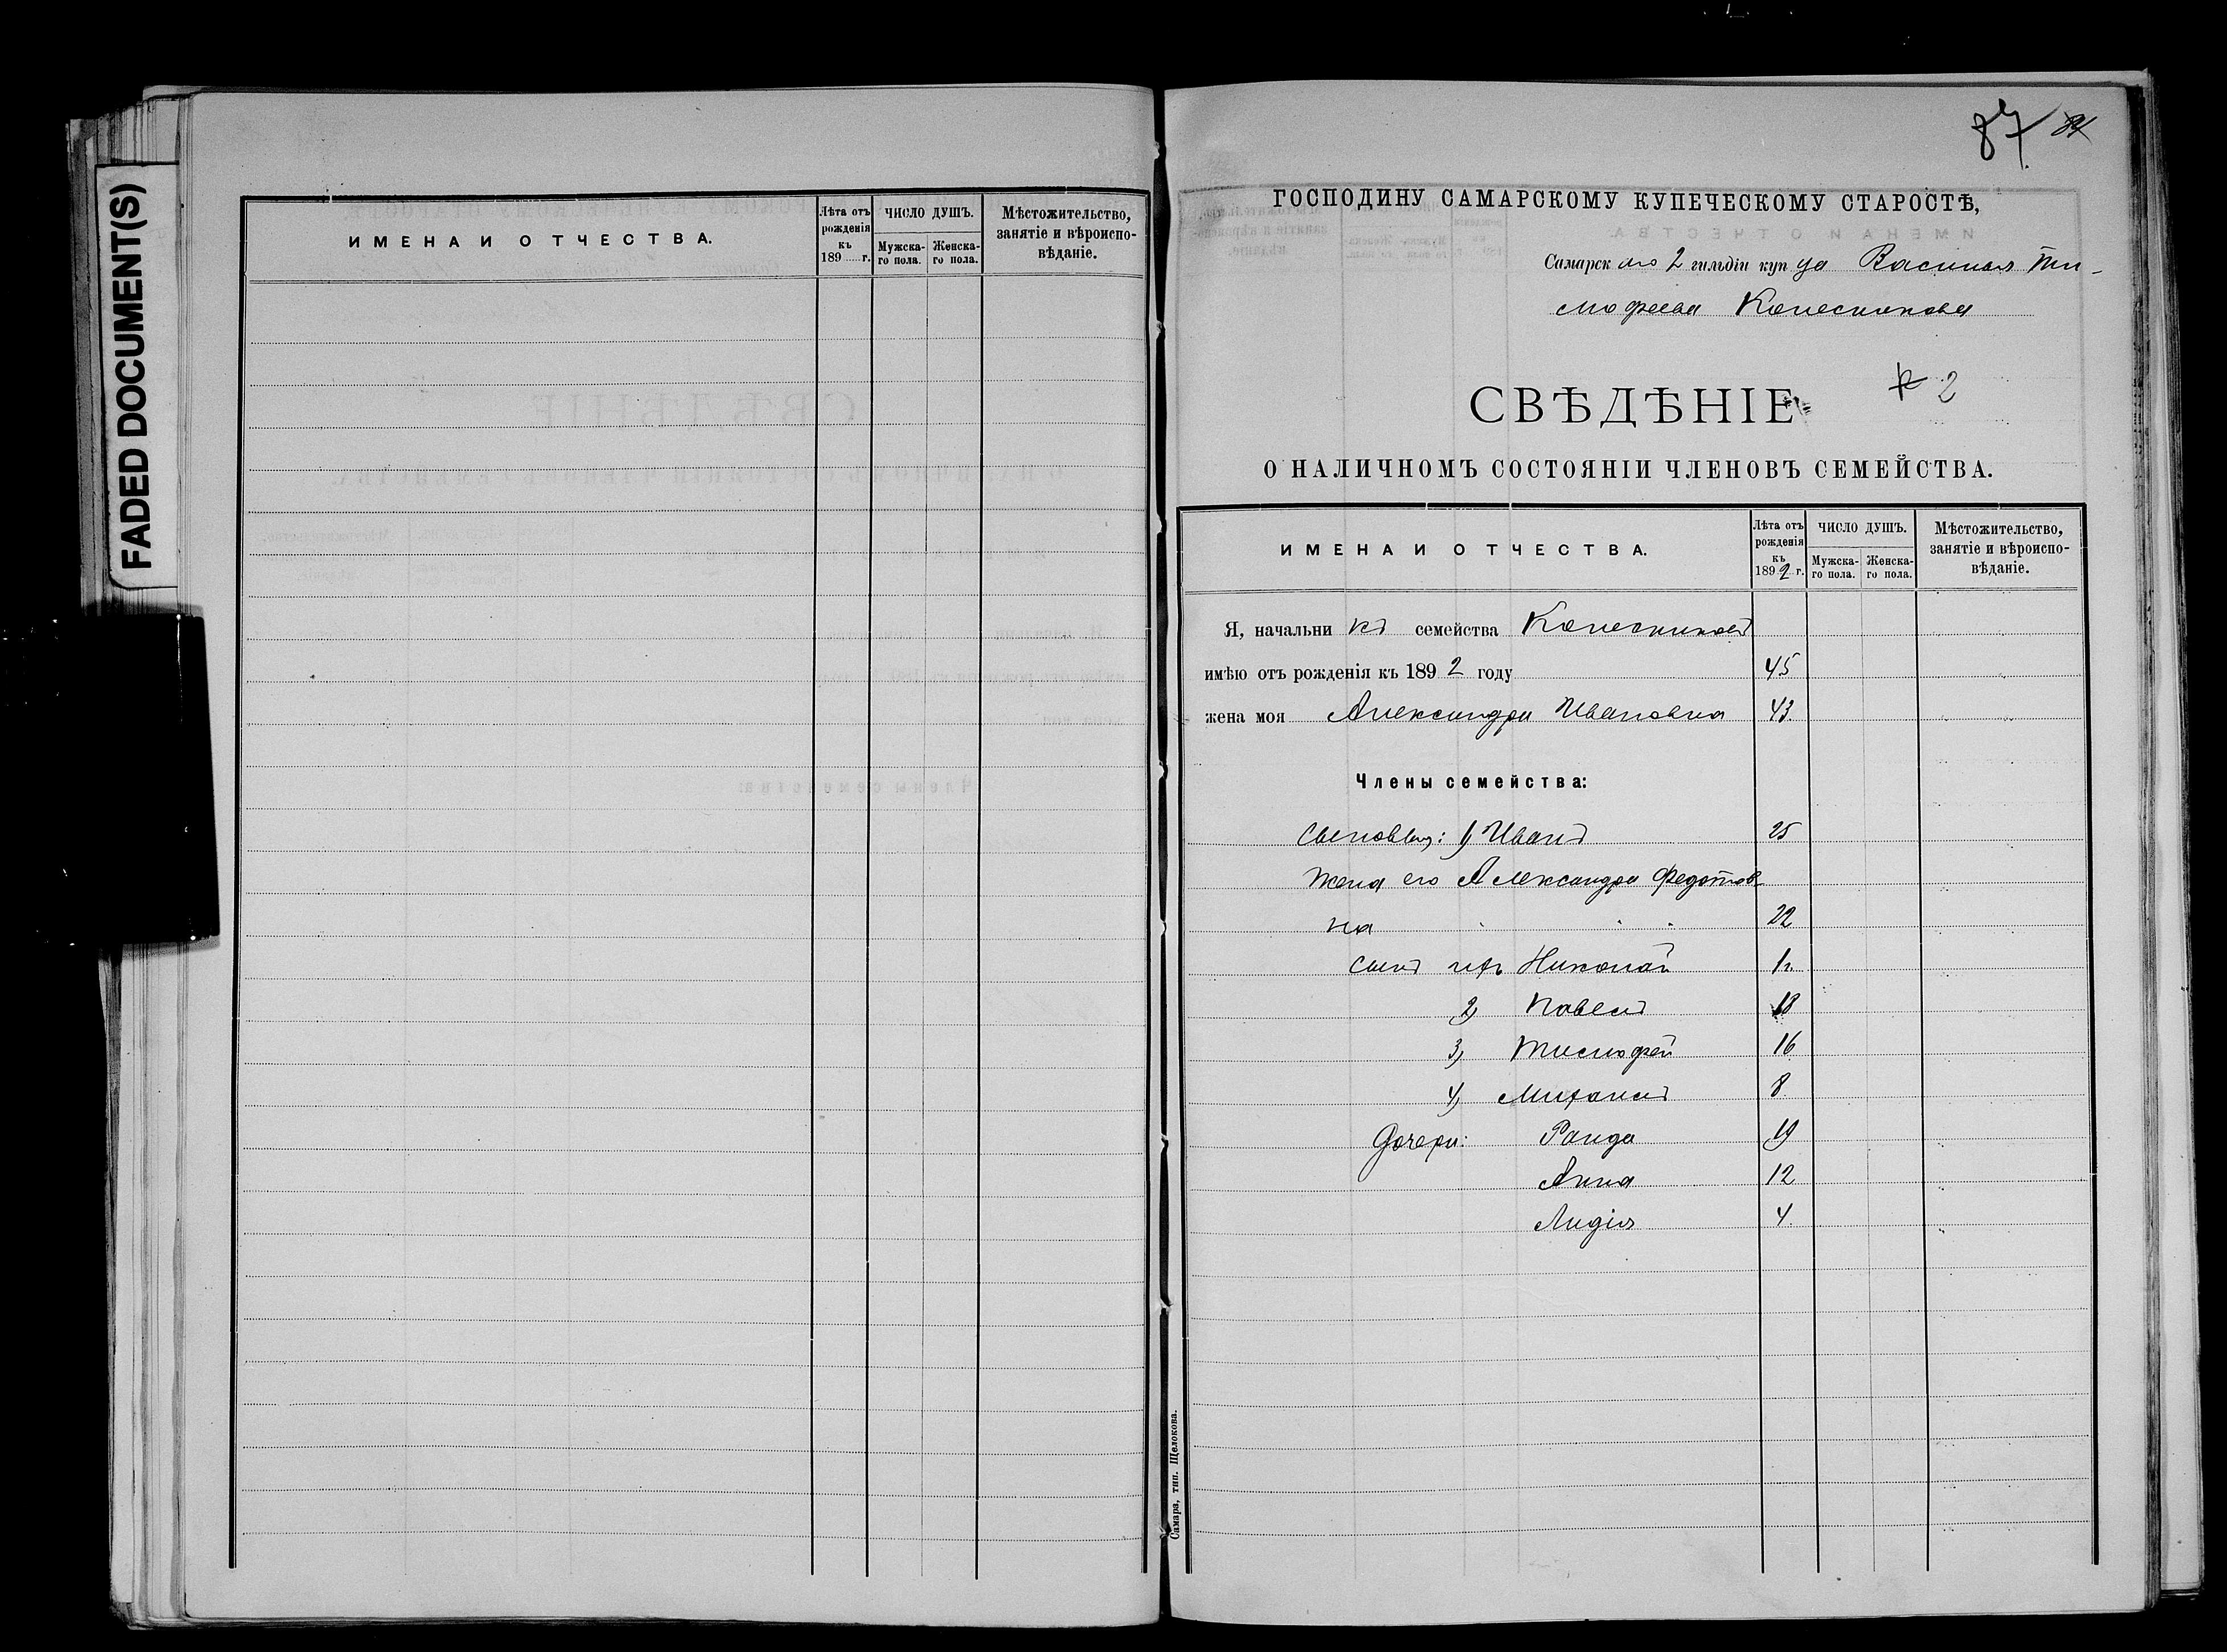 FADED DOCUMENT(S)
ИМЕНА И ОТЧЕСТВА.
Лѣта отъ рожденія къ 189 г.
ЧИСЛО ДУШЪ.
Мужска-го пола.
Женска-го пола.
Мѣстожительство, занятіе и вѣроиспо-вѣданіе.
87
ГОСПОДИНУ САМАРСКОМУ КУПЕЧЕСКОМУ СТАРОСТѢ,
Самарскаго 2 гильдіи купца Василья Ти-
мофеева Колесникова
СВѢДѢНІЕ
2
О НАЛИЧНОМЪ СОСТОЯНІИ ЧЛЕНОВЪ СЕМЕЙСТВА.
ИМЕНА И ОТЧЕСТВА.
Лѣта отъ рожденія къ 1892 г.
ЧИСЛО ДУШЪ.
Мужска-го пола.
Женска-го пола.
Мѣстожительство, занятіе и вѣроиспо-вѣданіе.
Я, начальникъ семейства Колесниковъ
имѣю отъ рожденія къ 1892 году 45
жена моя Александра Ивановна 43
Члены семейства:
Сыновья: 1) Иванъ 25
Жена его Александра Федотов
на 22
сынъ ихъ Николай 1 г.
2) Павелъ 18
3) Тимофей 16
4) Михаилъ 8
Дочери: Раида 19
Анна 12
Лидія 4
Самара, тип. Щелокова.